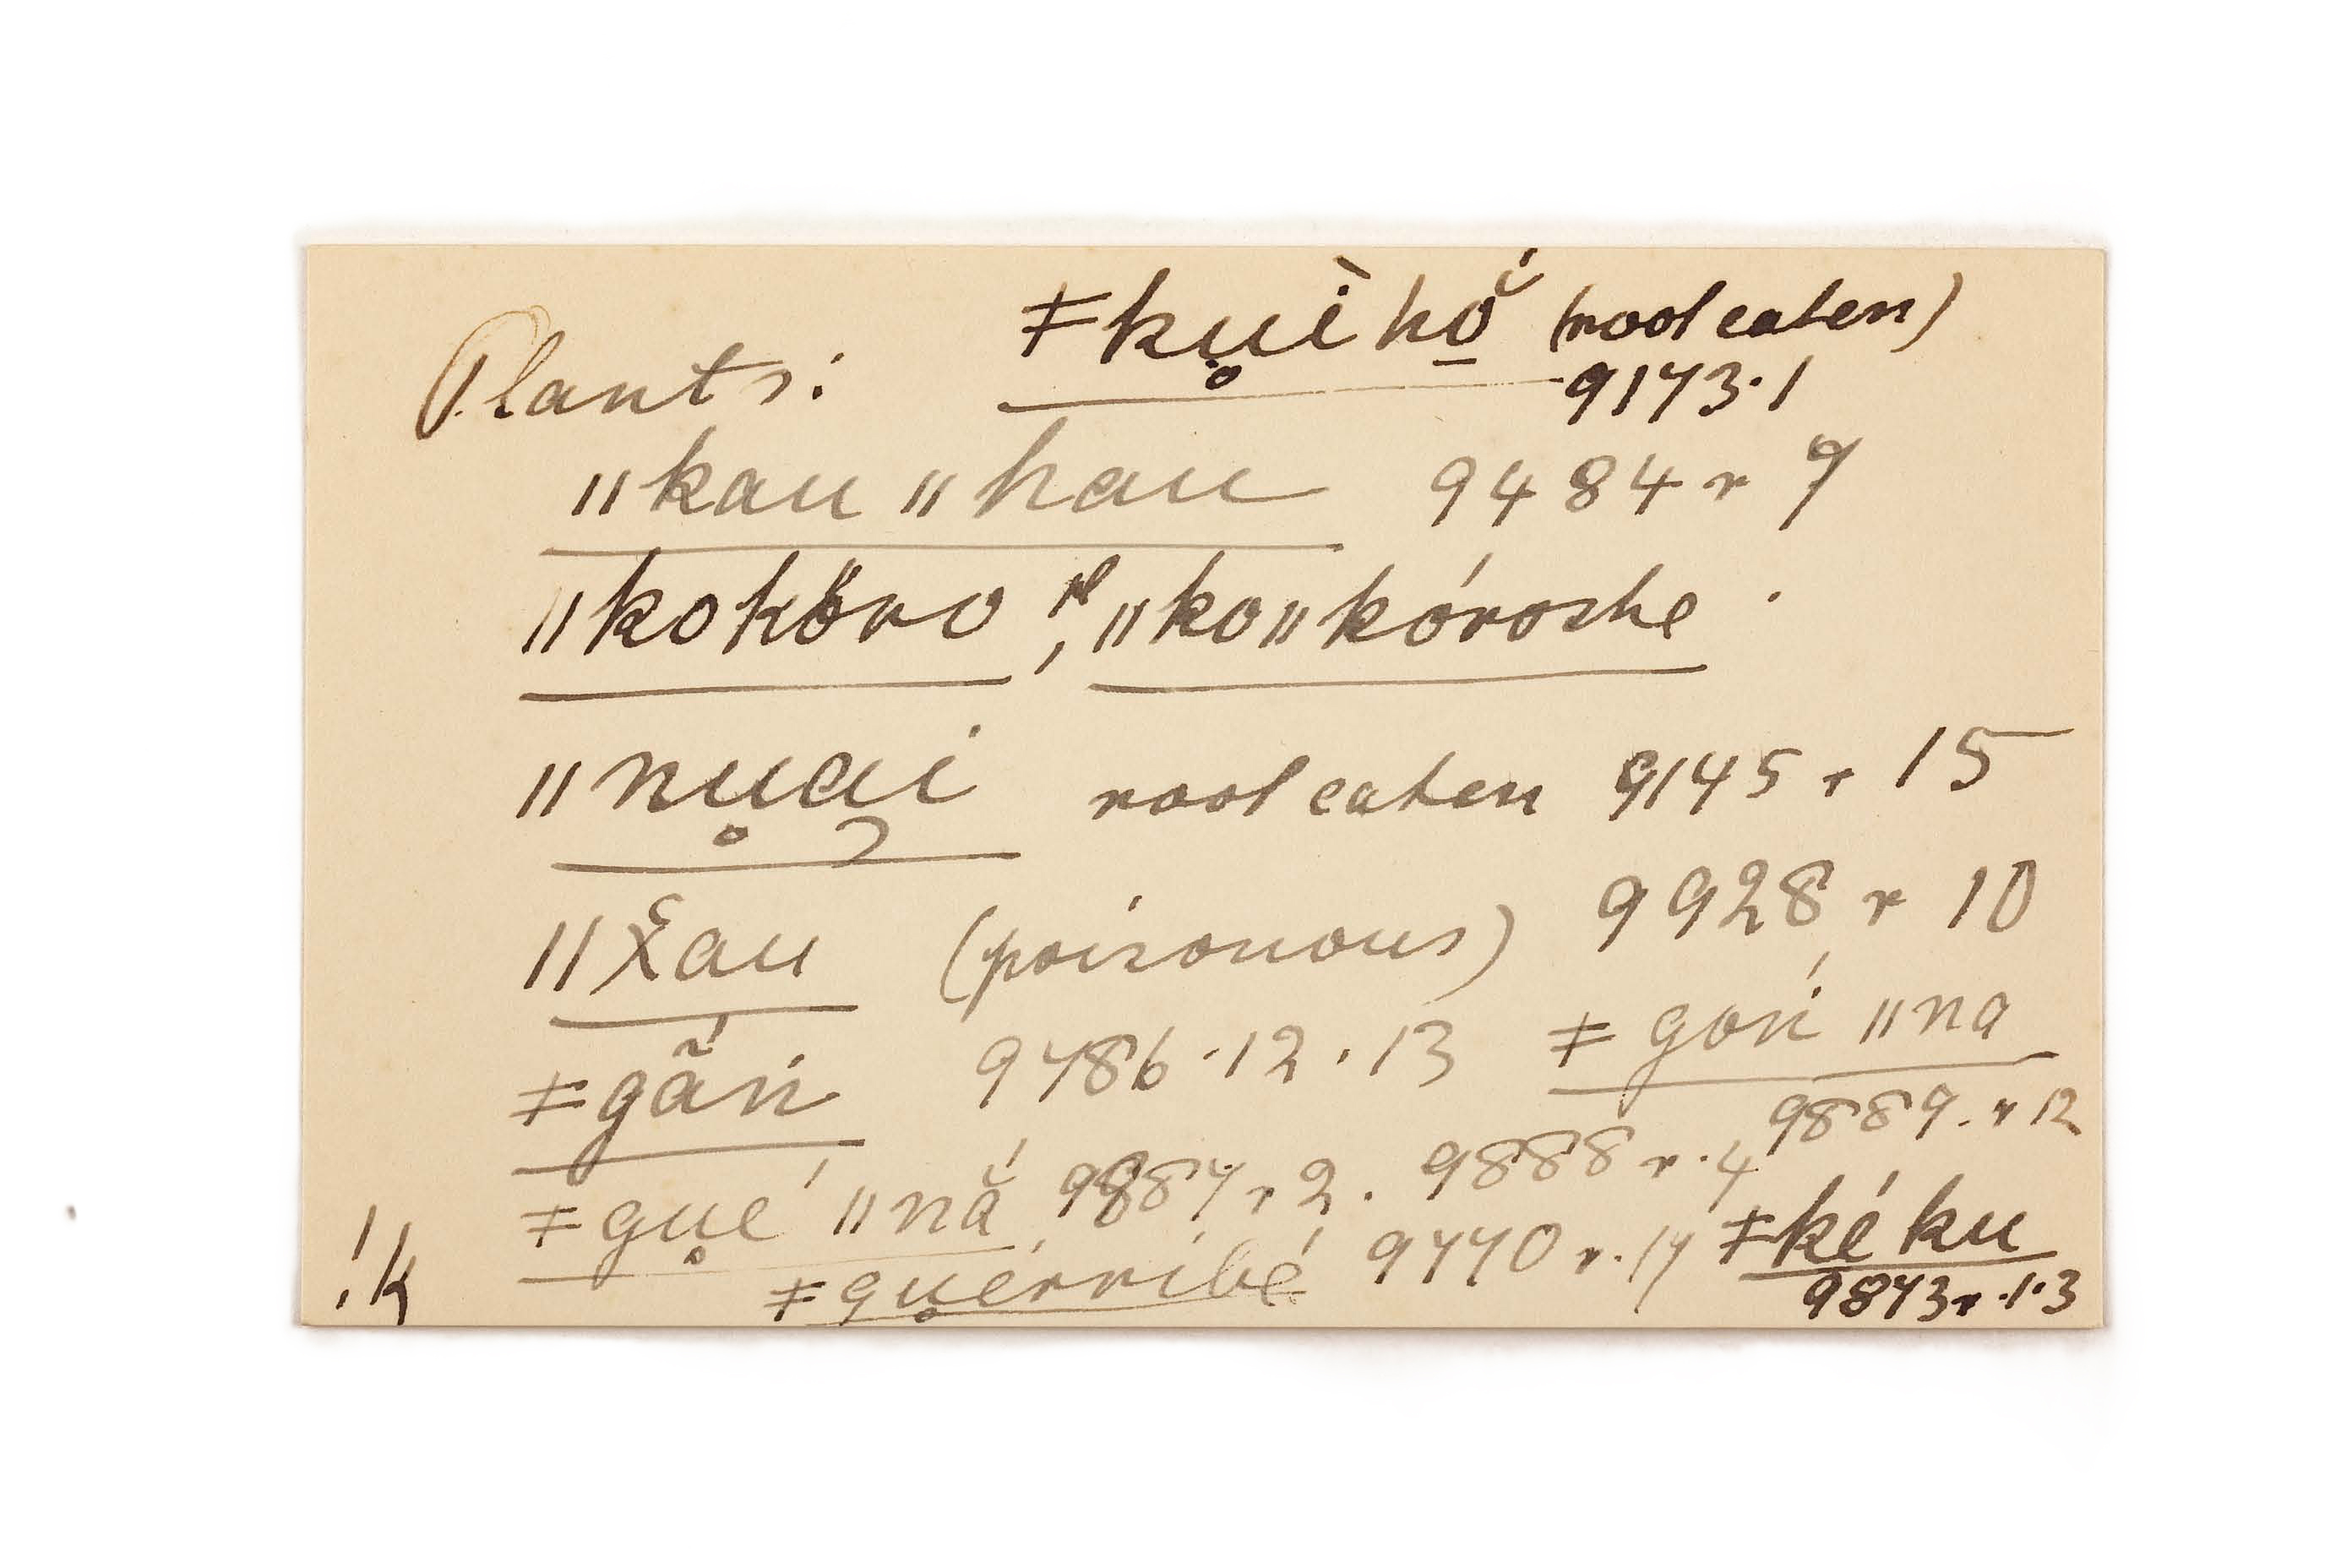 Plants: ǂku̥ìhŏ́ (root eaten)
9173.1
ǁkau ǁhau 9484 r 9
ǁkokŏ̈ro, pl ǁkoǁkóroshe.
ǁnu̥ai root eaten 9145 r 15
ǁX̆au (poisonous) 9928 r 10
ǂgã́ṅ 9486.12.13 ǂgoṅ́ ǁna
9889. r 12
ǂgu̥é ǁnắ 9887 r 2. 9888 r.4
!k ǂgu̥érríbé 9770 r.17 ǂkéku
9873 r.1.3